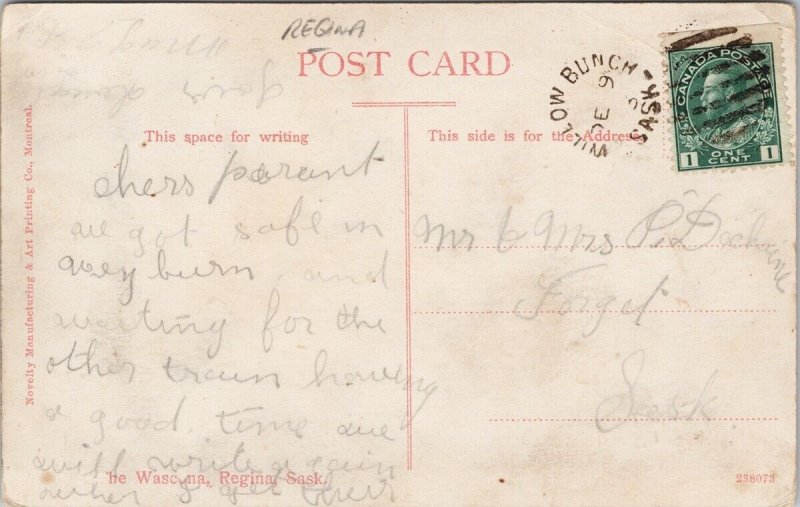 REGINA
POST CARD
WILLOW BUNCH
SASK
DE 9
CANADA POSTAGE
1 ONE CENT 1
This space for writing
This side is for the Address
Novelty Manufacturing & Art Printing Co., Montreal.
chers parant
we got safe in
weyburn and
waiting for the
other train having
a good time we
will write again
when I get their
Mr & Mrs P.
Forget
Sask.
he Wascana, Regina, Sask.
238073